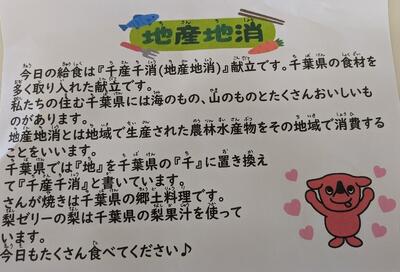 地産地消
今日の給食は『千産千消(地産地消)』献立です。千葉県の食材を
多く取り入れた献立です。
私たちの住む千葉県には海のもの、山のものとたくさんおいしいも
のがあります。
地産地消とは地域で生産された農林水産物をその地域で消費する
ことをいいます。
千葉県では『地』を千葉県の『千』に置き換え
て『千産千消』と書いています。
さんが焼きは千葉県の郷土料理です。
梨ゼリーの梨は千葉県の梨果汁を使って
います。
今日もたくさん食べてください♪